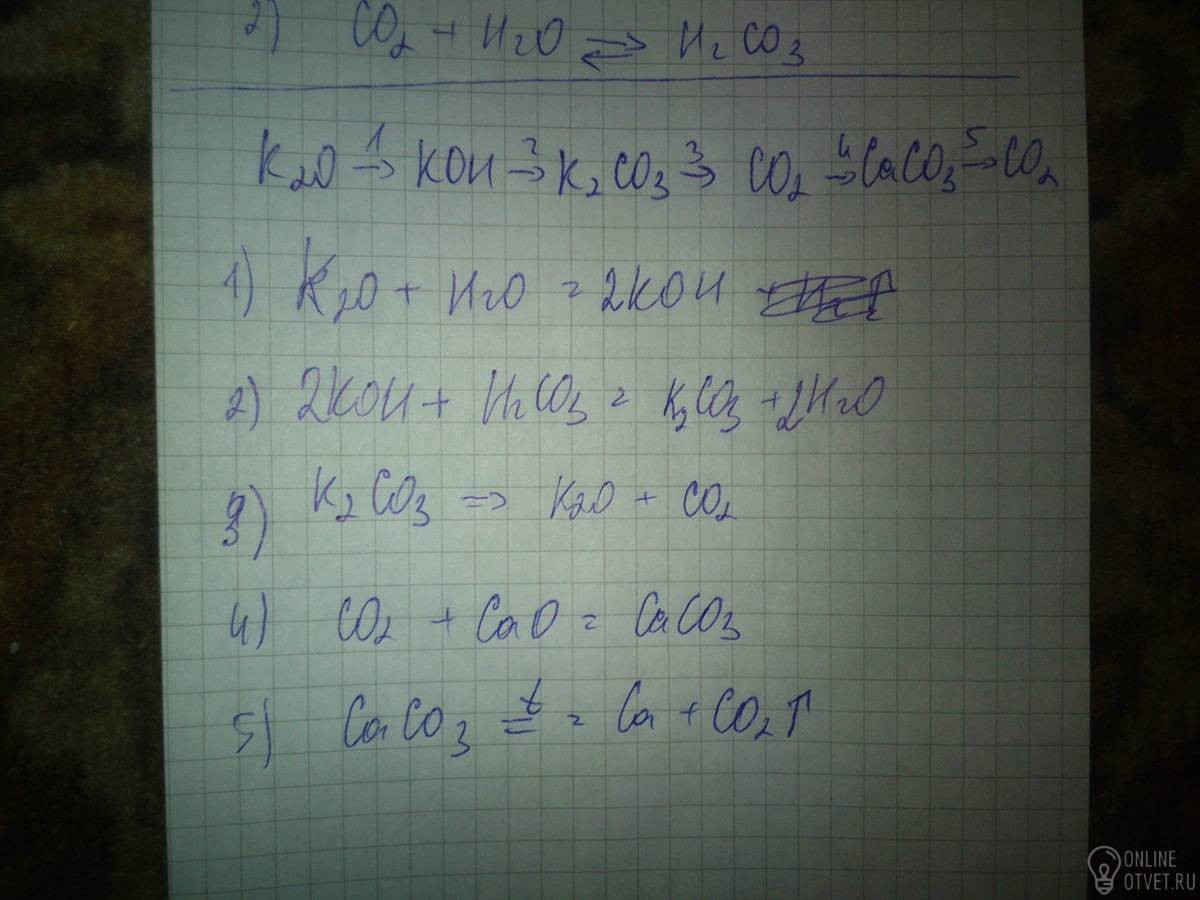 2) CO₂ + H₂O ⇌ H₂CO₃
K₂O →1 KOH →2 K₂CO₃ →3 CO₂ →4 CaCO₃ →5 CO₂
1) K₂O + H₂O = 2KOH
2) 2KOH + H₂CO₃ = K₂CO₃ + 2H₂O
3) K₂CO₃ => K₂O + CO₂
4) CO₂ + CaO = CaCO₃
5) CaCO₃ =t = Ca + CO₂↑
ONLINE
OTVET.RU